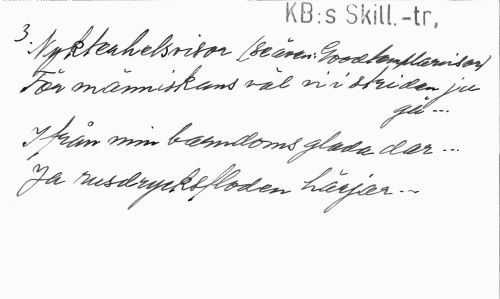 KB:s Skill.-tr,
3. Nykterhetsvisor (se även: Goodtemplarvisor)
För människans väl vi i striden ju
gå ...
Ifrån min barndoms glada dar ...
Ja rusdrycksfloden härjar ...